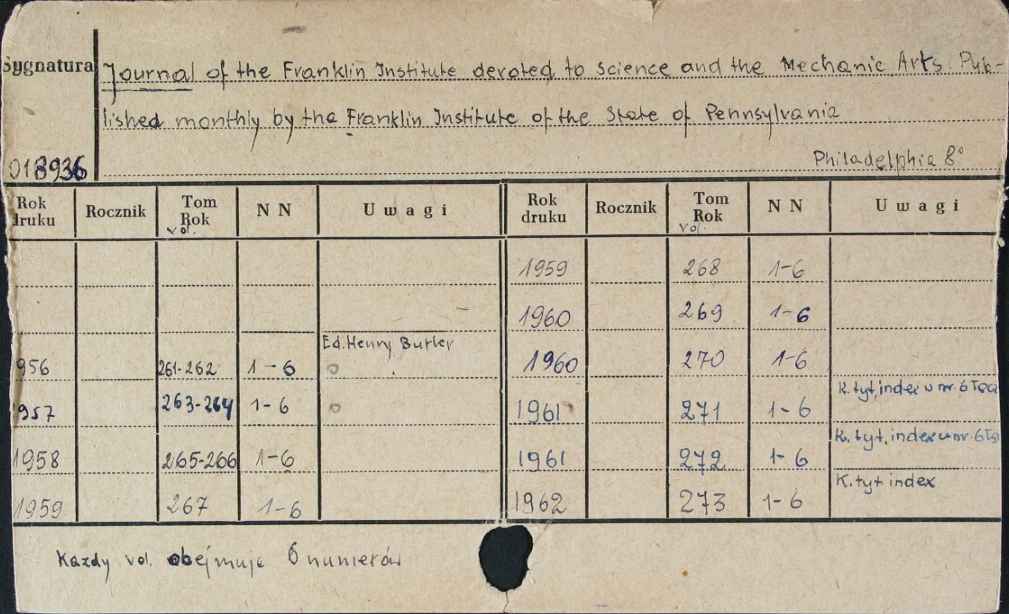 Sygnatura
Journal of the Franklin Institute devoted to science and the Mechanic Arts. Pub-
lished monthly by the Franklin Institute of the State of Pennsylvania
018936 Philadelphia 8°
Rok druku Rocznik Tom Rok vol. NN Uwagi Rok druku Rocznik Tom Rok vol. NN Uwagi
1959 268 1-6
1960 269 1-6
956 261-262 1-6 Ed. Henry Butler 1960 270 1-6
1957 263-264 1-6 1961 271 1-6 K. tyt, index w nr. 6
1958 265-266 1-6 1961 272 1-6 K. tyt, index w nr. 6
1959 267 1-6 1962 273 1-6 K. tyt index
Każdy vol. obejmuje 6 numerów